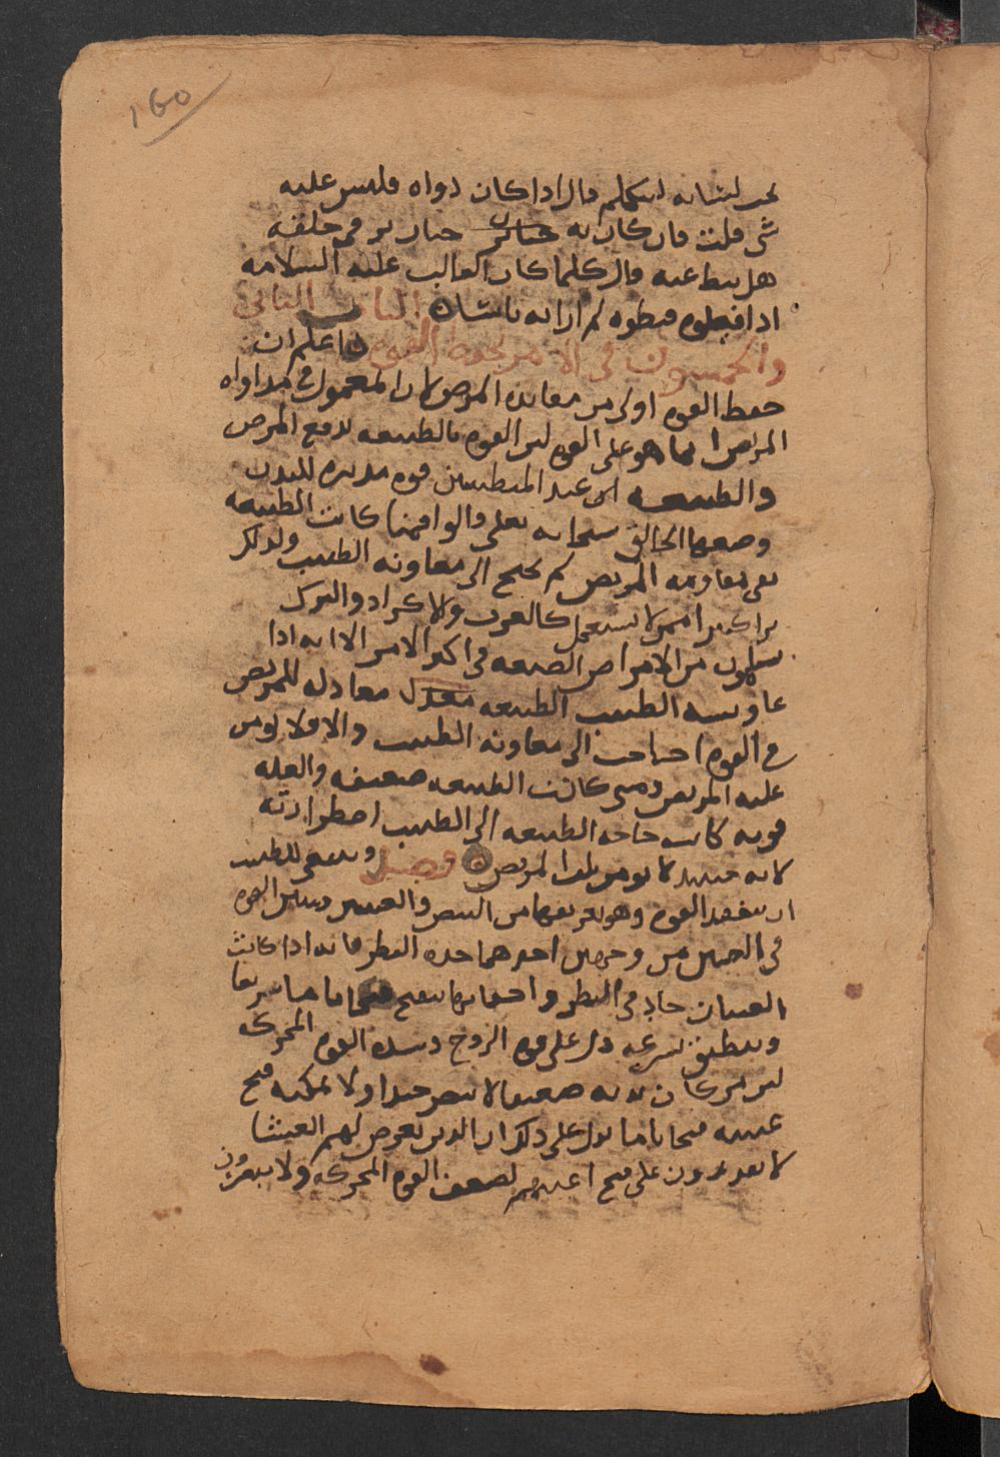 160
تحت لسانه ليتكلم قال اذا كان دواه فليس عليه
شي قلت فان كان به خنازير في حلقه
هل يبط عنه قال كلما كان الغالب عليه السلامه
اذا فعلوه فبطوه لم ار به باسا الباب الثاني
والخمسون في الامر بحفظ القوه اعلم ان
حفظ القوه اولى من معانده المرض لان المعمول في مداواه
المريض انما هو على القوه لين القوه بالطبيعه تدفع المرض
والطبيعه اي عند المتطببين قوه مدبره للبدن
وضعها الخالق سبحانه وتعلى قالوا فمتى كانت الطبيعه
تفي بمقاومه المرض لم تحتج الى معاونه الطبيب ولذلك
نرا كثيرا ممن لا يستعمل كالعرب والاكراد والترك
يسلمون من الامراض الصعبه في اكثر الامر الا انه اذا
عاون الطبيب الطبيعه معادله للمرض
في القوه احتاجت الى معاونه الطبيب والا فلا يومن
عليه المريض ومتى كانت الطبيعه ضعيفه والعله
قويه كانت حاجه الطبيعه الى الطبيب اضطراريه
لانه حينيذ لا يومن تلف المريض فصل وينبغي للطبيب
ان يتفقد القوه وهو يعرفها من النبض والعينين وتبين القوه
في العينين من وجهين احدهما حده النظر فانه اذا كانت
العينان حادتي النظر واجفانها تنفتح فتحا تاما سريعا
وينطبق بسرعه دل على قوه الروح وشده القوه المحركه
لين من كان بدنه ضعيفا لا يبصر جيدا ولا يمكنه فتح
عينيه فتحا تاما يدل على ذلك ان الذين يعرض لهم الغشا
لا يقدرون على فتح اعينهم لضعف القوه المحركه ولا يبصرون